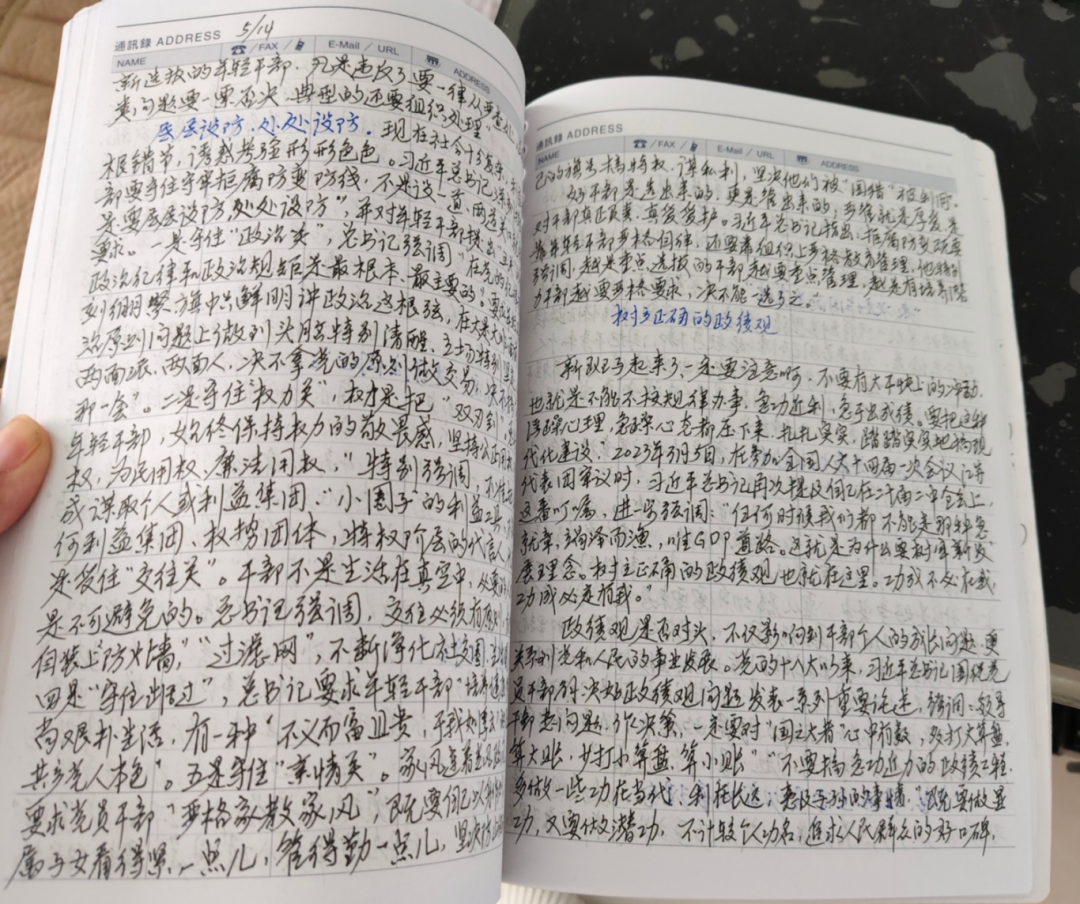 5/14
通訊錄 ADDRESS
NAME ☎/FAX/ E-Mail / URL ADDRESS
新选拔的年轻干部,凡是违反了要一律从严查处
类问题要一票否决,典型的还要组织处理”
层层设防、处处设防。现在社会十分复杂,
根错节,诱惑考验形形色色。习近平总书记
部要守住守牢拒腐防变防线,不是设一道、两道
是要层层设防,处处设防”,并对年轻干部提出五
要求。一是守住“政治关”,总书记强调“在党的
政治纪律和政治规矩是最根本、最重要的。要
刻绷紧旗帜鲜明讲政治这根弦,在大是大非
治原则问题上做到头脑特别清醒、立场特别
两面派、两面人,决不拿党的原则做交易,决不搞
那一套”。二是守住“权力关”,权力是把“双刃剑”
年轻干部,始终保持权力的敬畏感,坚持公正用
权,为民用权、廉洁用权,”特别强调,不准
成谋取个人或利益集团、“小圈子”的利益工具,
何利益集团、权势团体,特权阶层的代言人
是货住“交往关”。干部不是生活在真空中,
是不可避免的。总书记强调,交往必须有原则,
间装上“防火墙”,“过滤网”,不断净化社交圈,
四是“守住生活”,总书记要求年轻干部“培养
苦艰朴生活,有一种“不义而富且贵,于我如浮云”
共产党人本色”。五是守住“亲情关”。家风连着
要求党员干部“严格家教家风”,既要自己以身作则
属子女看得紧一点儿,管得勤一点儿,坚决
通訊錄 ADDRESS
NAME ☎/FAX/ E-Mail / URL ADDRESS
己的旗号搞特权、谋私利,坚决他们被“围猎”被利用。
好干部是选出来的,更是管出来的,严管就是厚爱,是
对干部真正负责、真爱爱护。习近平总书记指出,拒腐防变既要
靠年轻干部严格自律,还要靠组织上严格教育管理,他特别
强调,越是重点选拔的干部越要重点管理,越是有培养潜
力干部越要严格要求,决不能一选了之。
树立正确的政绩观
新班子起来了一定要注意啊,不要有大干快上的冲动,
也就是不能不按规律办事,急功近利、急于出成绩。要把这种
浮躁心理、急躁心态都压下来,扎扎实实、踏踏实实地搞现
代化建设。2023年3月5日,在参加全国人大十四届一次会议江苏
代表团审议时,习近平总书记再次提及自己在二十届二中全会上
这番叮嘱,进一步强调:“任何时候我们都不能走那种急
就章、竭泽而渔、唯GDP道路。这就是为什么要树牢新发
展理念。树立正确的政绩观也就在这里。功成不必在我,
功成必定有我。”
政绩观是否对头,不仅影响到干部个人的成长问题,更
关系到党和人民的事业发展。党的十八大以来,习近平总书记围绕党
员干部解决好政绩观问题发表一系列重要论述,强调:领导
干部想问题、作决策,一定要对“国之大者”心中有数,多打大算盘、
算大账,少打小算盘、算小账”“不要搞急功近利的政绩工程,
多做一些功在当代、利在长远、惠及子孙的事情”“既要做显
功,又要做潜功,不计较个人功名,追求人民群众的好口碑,